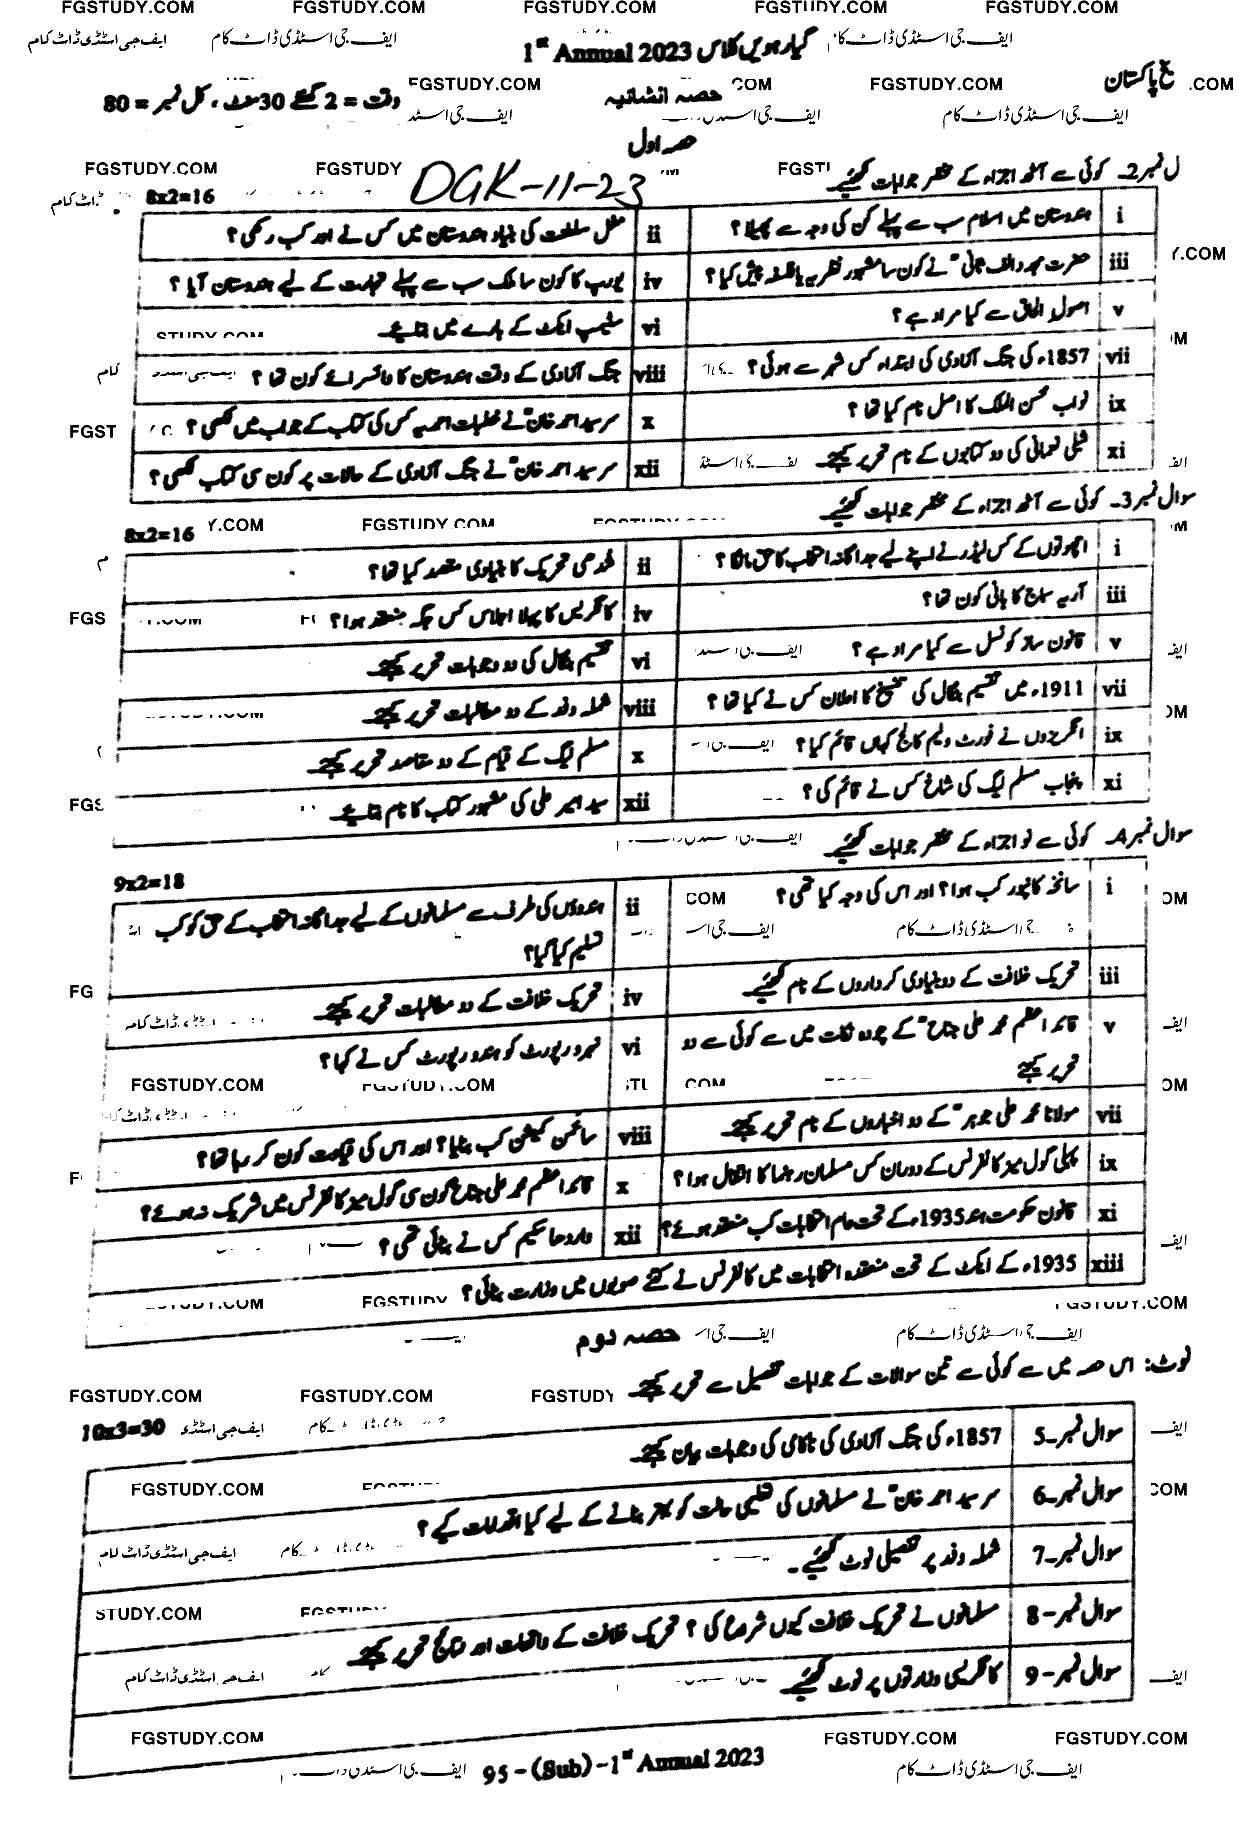 FGSTUDY.COM FGSTUDY.COM FGSTUDY.COM FGSTUDY.COM FGSTUDY.COM
ایف جی اسٹڈی ڈاٹ کام ایف جی اسٹڈی ڈاٹ کام گیارہویں کلاس 1st Annual 2023 ایف جی اسٹڈی ڈاٹ کام
پاکستان FGSTUDY.COM .COM FGSTUDY.COM .COM
حصہ انشائیہ وقت = 2 گھنٹے 30 منٹ ، کل نمبر = 80
حصہ اول
FGSTUDY.COM FGSTUDY DGK-11-23
ل نمبر 2۔ کوئی سے آٹھ اجزاء کے مختصر جوابات لکھئیے 8x2=16
i ہندوستان میں اسلام سب سے پہلے کن کی وجہ سے پھیلا؟
ii مغل سلطنت کی بنیاد ہندوستان میں کس نے اور کب رکھی؟
iii حضرت مجدد الف ثانیؒ نے کون سا مشہور نظریہ یا فلسفہ پیش کیا؟
iv یورپ کا کون سا ملک سب سے پہلے تجارت کے لیے ہندوستان آیا؟
v اصولِ الحاق سے کیا مراد ہے؟
vi سٹیمپ ایکٹ کے بارے میں بتائیے
vii 1857ء کی جنگ آزادی کی ابتداء کس شہر سے ہوئی؟
viii جنگ آزادی کے وقت ہندوستان کا وائسرائے کون تھا؟
ix نواب محسن الملک کا اصل نام کیا تھا؟
x سرسید احمد خانؒ نے خطبات احمدیہ کس کی کتاب کے جواب میں لکھی؟
xi شبلی نعمانی کی دو کتابوں کے نام تحریر کیجئے
xii سرسید احمد خانؒ نے جنگ آزادی کے حالات پر کون سی کتاب لکھی؟
سوال نمبر 3۔ کوئی سے آٹھ اجزاء کے مختصر جوابات لکھئیے 8x2=16
i اچھوتوں کے کس لیڈر نے اپنے لیے جداگانہ انتخاب کا حق مانگا؟
ii تحریک کا بنیادی مقصد کیا تھا؟
iii آریہ سماج کا بانی کون تھا؟
iv کانگریس کا پہلا اجلاس کس جگہ منعقد ہوا؟
v قانون ساز کونسل سے کیا مراد ہے؟
vi تقسیم بنگال کی دو وجوہات تحریر کیجئے
vii 1911ء میں تقسیم بنگال کی تنسیخ کا اعلان کس نے کیا تھا؟
viii شملہ وفد کے دو مطالبات تحریر کیجئے
ix انگریزوں نے فورٹ ولیم کالج کہاں قائم کیا؟
x مسلم لیگ کے قیام کے دو مقاصد تحریر کیجئے
xi پنجاب مسلم لیگ کی شاخ کس نے قائم کی؟
xii سید امیر علی کی مشہور کتاب کا نام بتائیے
سوال نمبر 4۔ کوئی سے نو اجزاء کے مختصر جوابات لکھئیے 9x2=18
i سانحہ کانپور کب ہوا؟ اور اس کی وجہ کیا تھی؟
ii ہندوؤں کی طرف سے مسلمانوں کے لیے جداگانہ انتخاب کے حق کو کب
تسلیم کیا گیا؟
iii تحریک خلافت کے دو بنیادی کرداروں کے نام لکھئیے
iv تحریک خلافت کے دو مطالبات تحریر کیجئے
v قائد اعظم محمد علی جناحؒ کے چودہ نکات میں سے کوئی سے دو
تحریر کیجئے
vi نہرو رپورٹ کو ہندو رپورٹ کس نے کہا؟
vii مولانا محمد علی جوہرؒ کے دو اخباروں کے نام تحریر کیجئے
viii سائمن کمیشن کب بنایا؟ اور اس کی قیادت کون کر رہا تھا؟
ix پہلی گول میز کانفرنس کے دوران کس مسلمان رہنما کا انتقال ہوا؟
x قائد اعظم محمد علی جناح کون سی گول میز کانفرنس میں شریک نہ ہوئے؟
xi قانون حکومت ہند 1935ء کے تحت عام انتخابات کب منعقد ہوئے؟
xii واردھا سکیم کس نے بنائی تھی؟
xiii 1935ء کے ایکٹ کے تحت منعقدہ انتخابات میں کانفرنس نے کتنے صوبوں میں وزارت بنائی؟
حصہ دوم
نوٹ: اس حصہ میں سے کوئی سے تین سوالات کے جوابات تفصیل سے تحریر کیجئے
FGSTUDY.COM FGSTUDY.COM FGSTUDY
10x3=30
سوال نمبر 5۔ 1857ء کی جنگ آزادی کی ناکامی کی وجوہات بیان کیجئے
سوال نمبر 6۔ سرسید احمد خانؒ نے مسلمانوں کی تعلیمی حالت کو بہتر بنانے کے لیے کیا اقدامات کیے؟
سوال نمبر 7۔ شملہ وفد پر تفصیلی نوٹ لکھئیے۔
سوال نمبر 8۔ مسلمانوں نے تحریک خلافت کیوں شروع کی؟ تحریک خلافت کے واقعات اور نتائج تحریر کیجئے
سوال نمبر 9۔ کانگریسی وزارتوں پر نوٹ لکھئیے
FGSTUDY.COM FGSTUDY.COM FGSTUDY.COM
95-(Sub)-1st Annual 2023
ایف جی اسٹڈی ڈاٹ کام